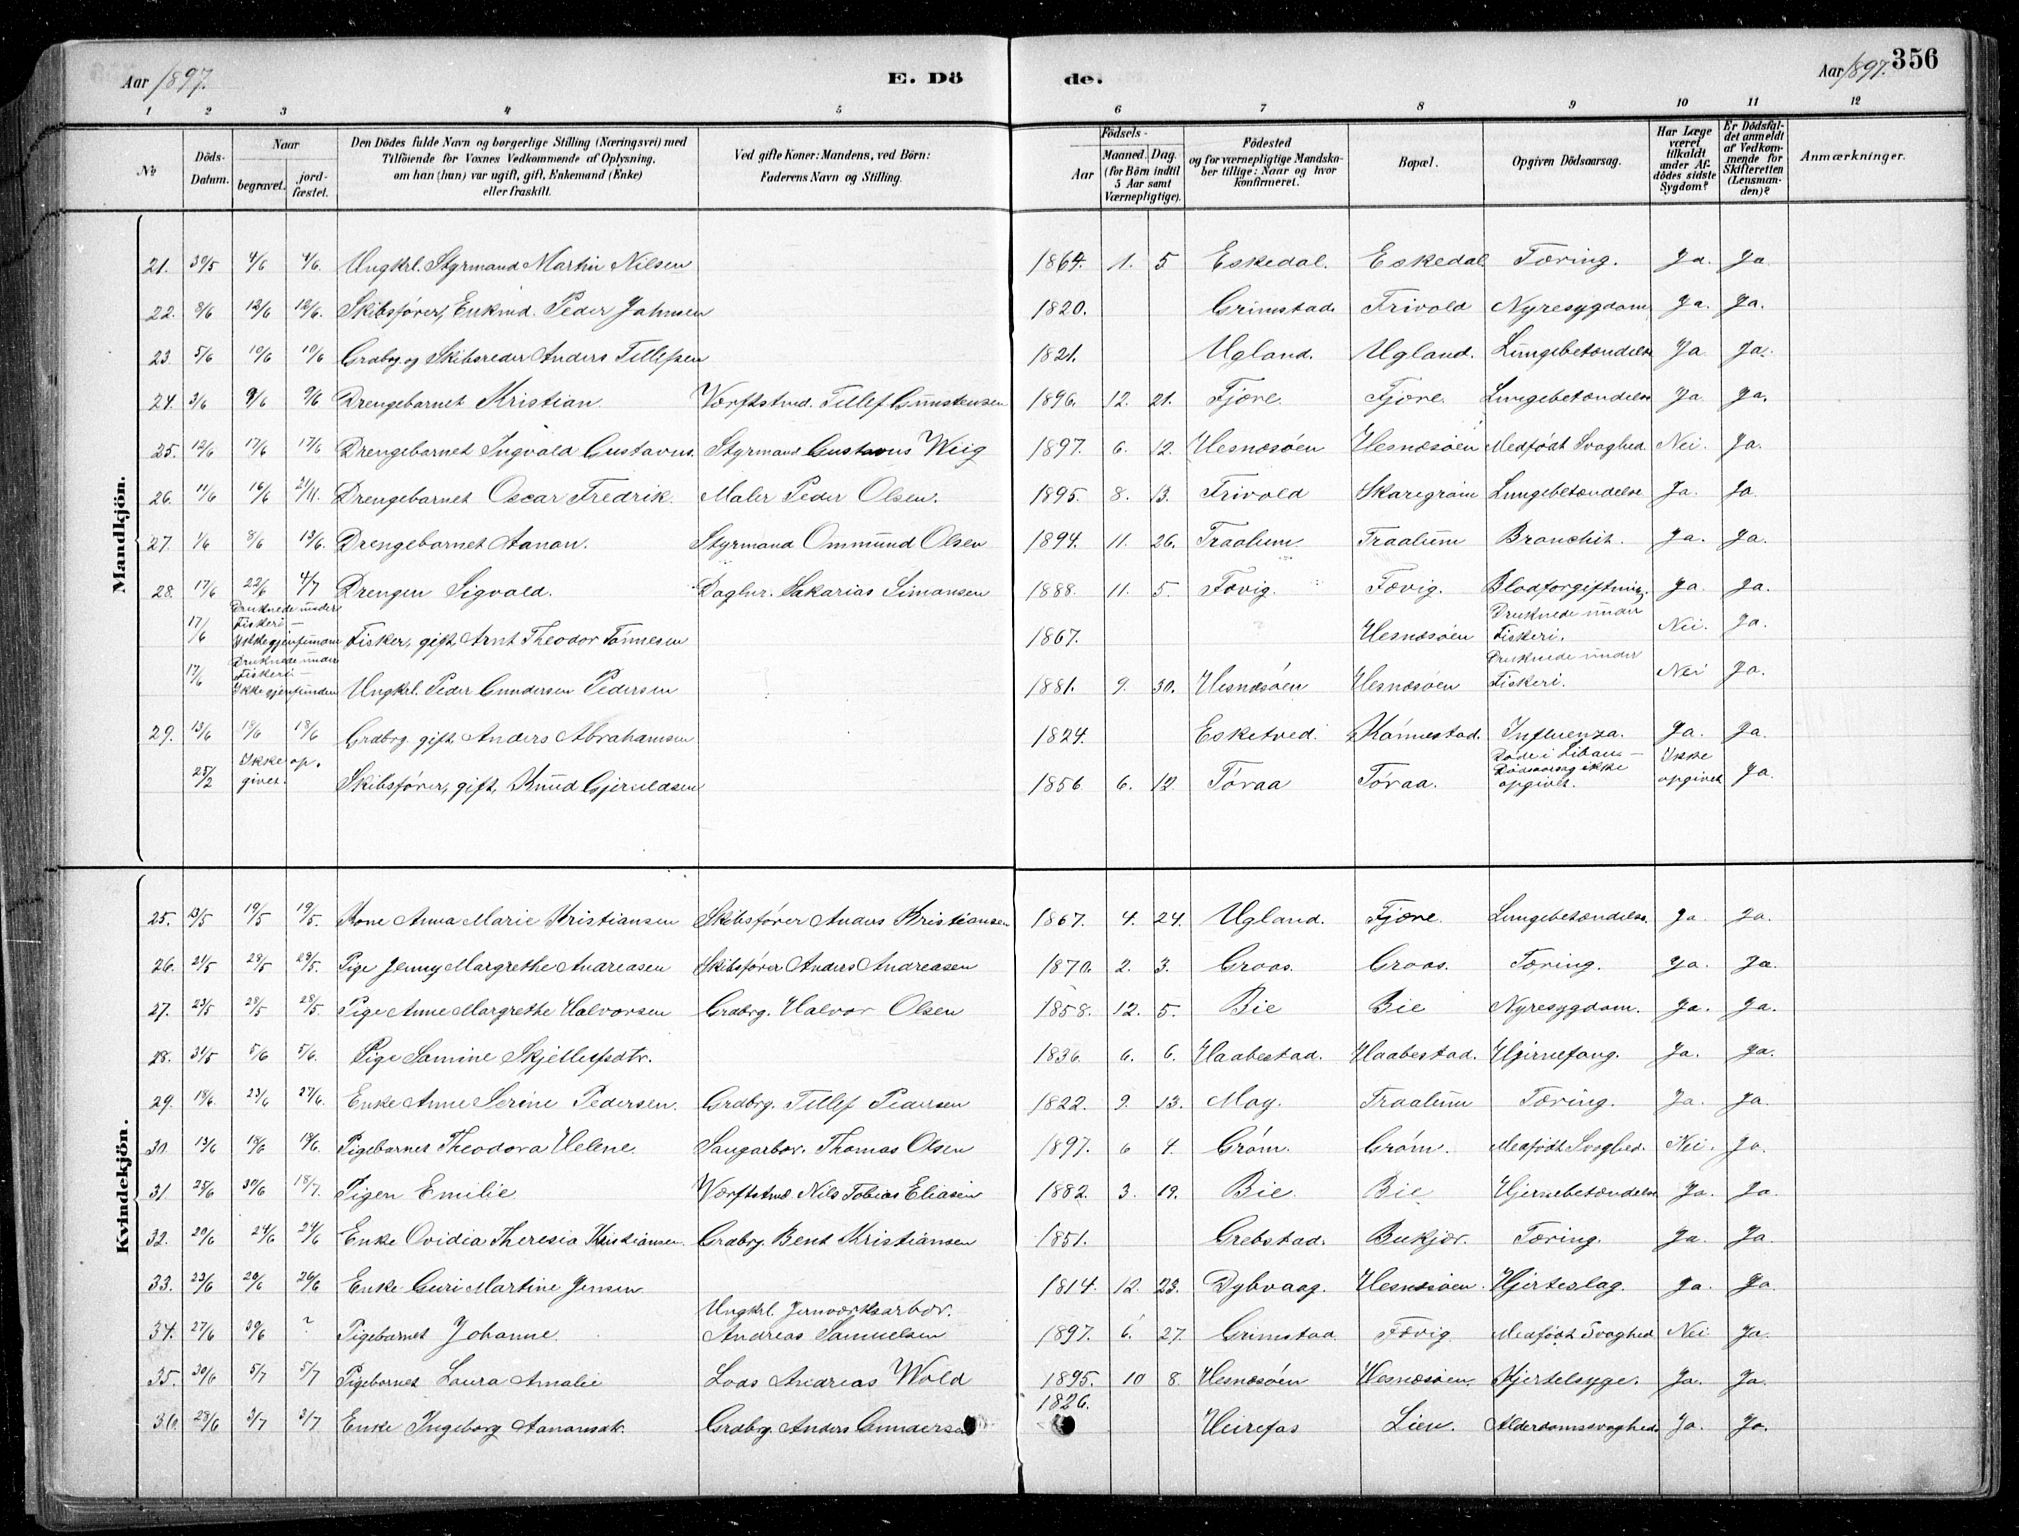 Aar 1897. E. Dö de. Aar 1897. 356
1 2 3 4 5 6 7 8 9 10 11 12
No Döds-Datum. Naar begravet. jordfæstet. Den Dödes fulde Navn og borgerlige Stilling (Næringsvei) med Tilföiende for Voxnes Vedkommende af Oplysning, om han (hun) var ugift, gift, Enkemand (Enke) eller fraskilt. Ved gifte Koner: Mandens, ved Börn: Faderens Navn og Stilling. Födsels- Aar Maaned. Dag. (for Börn indtil 5 Aar samt Værnepligtige). Födested og for værnepligtige Mandskaber tillige: Naar og hvor konfirmeret. Bopæl. Opgiven Dödsaarsag. Har Læge været tilkaldt under Afdödes sidste Sygdom? Er Dödsfaldet anmeldt af Vedkommende for Skifteretten (Lensmanden)? Anmærkninger.
Mandkjön.
21. 30/5 4/6 4/6. Ungkrl. Styrmand Martin Nilsen 1864. 11. 5 Eskedal. Eskedal Tæring. Ja. Ja
22. 8/6 12/6 12/6. Skibsfører, Enkmd. Peder Jahnsen 1820. Grimstad Frivold Nyresygdom Ja. Ja.
23 5/6 10/6 10/6 Grdbrg. og Skibsreder Anders Tellefsen 1821. Ugland. Ugland. Lungebetændelse Ja Ja.
24. 3/6 9/6 9/6 Drengebarnet Kristian Værftstmd. Tellef Gunstensen 1896. 12. 21. Fjære Fjære. Lungebetændelse Ja Ja.
25. 12/6 17/6 17/6 Drengebarnet Ingvald Gustavus. Styrmand Gustavus Wiig 1897. 6. 12. Hesnæsøen Hesnæsøen Medfødt Svaghed Nei. Ja.
26. 11/6 16/6 21/11. Drengebarnet Oscar Fredrik. Maler Peder Olsen. 1895. 8. 13. Frivold Skaregrøm Lungebetændelse Ja. Ja.
27. 1/6 8/6 13/6. Drengebarnet Aanon. Styrmand Ommund Olsen 1894. 11. 26. Traalum Traalum Bronchit. Ja. Ja.
28. 17/6 22/6 4/7 Drengen Sigvald. Daglnr. Sakarias Simonsen 1888. 11. 5. Fævig. Fævig. Blodforgiftning. Ja Ja.
17/6 Druknede under Fiskeri – Ikke gjenfunden Fisker, gift, Arnt Theodor Tønnesen 1867. Hesnæsøen Druknede under Fiskeri. Nei. Ja.
17/6 Druknede under Fiskeri – Ikke gjenfunden Ungkrl. Peder Gundersen Pedersen 1881. 9. 30. Hesnæsøen Hesnæsøen Druknede under Fiskeri. Nei Ja.
29. 13/6 18/6 18/6 Grdbrg. gift, Anders Abrahamsen 1824. Esketved. Rønnestad. Influenza. Ja. Ja.
25/2 Ikke opgivet. Skibsfører, gift, Knud Gjeruldsen 1856 6. 12. Tøraa Tøraa. Døde i Libau – Dødsaarsag ikke opgivet. Ikke opgivet Ja.
Kvindekjön.
25. 13/5 19/5 19/5. Kone Anna Marie Kristiansen Skibsfører Anders Kristiansen 1867. 4. 24. Ugland. Fjære. Lungebetændelse. Ja. Ja.
26. 21/5 28/5 28/5. Pige Jenny Margrethe Andreasen Skibsfører Anders Andreasen 1870. 2. 3. Groos. Groos. Tæring. Ja. Ja.
27. 23/5 28/5 28/5. Pige Anne Margrethe Halvorsen Grdbrg. Halvor Olsen 1858. 12. 5. Bie Bie Nyresygdom. Ja. Ja.
28. 31/5 5/6 5/6. Pige Samine Skjellufsdtr. 1836 6. 6. Haabestad. Haabestad. Hjirnefang. Ja. Ja.
29. 18/6. 23/6 27/6. Enke Anne Serine Pedersen. Grdbrg. Tellef Pedersen 1822. 9. 13. Moy. Traalum Tæring. Ja. Ja.
30. 13/6 18/6 18/6. Pigebarnet Theodora Helene. Saugarbdr. Thomas Olsen 1897. 6 4. Grøm. Grøm. Medfødt Svaghed. Nei. Ja.
31 25/6 30/6 18/7 Pigen Emilie Værftstmd Nils Tobias Eliasen 1882. 3. 19. Bie. Bie Hjernebetændelse Ja. Ja.
32. 20/6 24/6 24/6 Enke Ovidia Theresia Kristiansen. Grdbrg. Bent Kristiansen 1851. Grebstad. Bukjær. Tæring. Ja. Ja
33. 23/6 26/6 26/6 Enke Guri Martine Jensen 1814. 12. 23. Dybvaag. Hesnæsøen. Hjerteslag. Ja. Ja.
34. 27/6 29/6 ? Pigebarnet Johanne. Ungkrl. Jernværksarbdr. Andreas Samuelsen 1897. 6. 27. Grimstad Fævig. Medfødt Svaghed Nei Ja.
35. 30/6 5/7 5/7 Pigebarnet Laura Amalie Lods Andreas Wold 1895. 10 8. Hesnæsøen Hesnæsøen. Hjertesyge. Ja. Ja.
36. 28/6 3/7 3/7 Enke Ingeborg Aanonsdtr. Grdbrg. Anders Gundersen 1826. Heirefos Lien. Alderdomssvaghed. Ja. Ja.